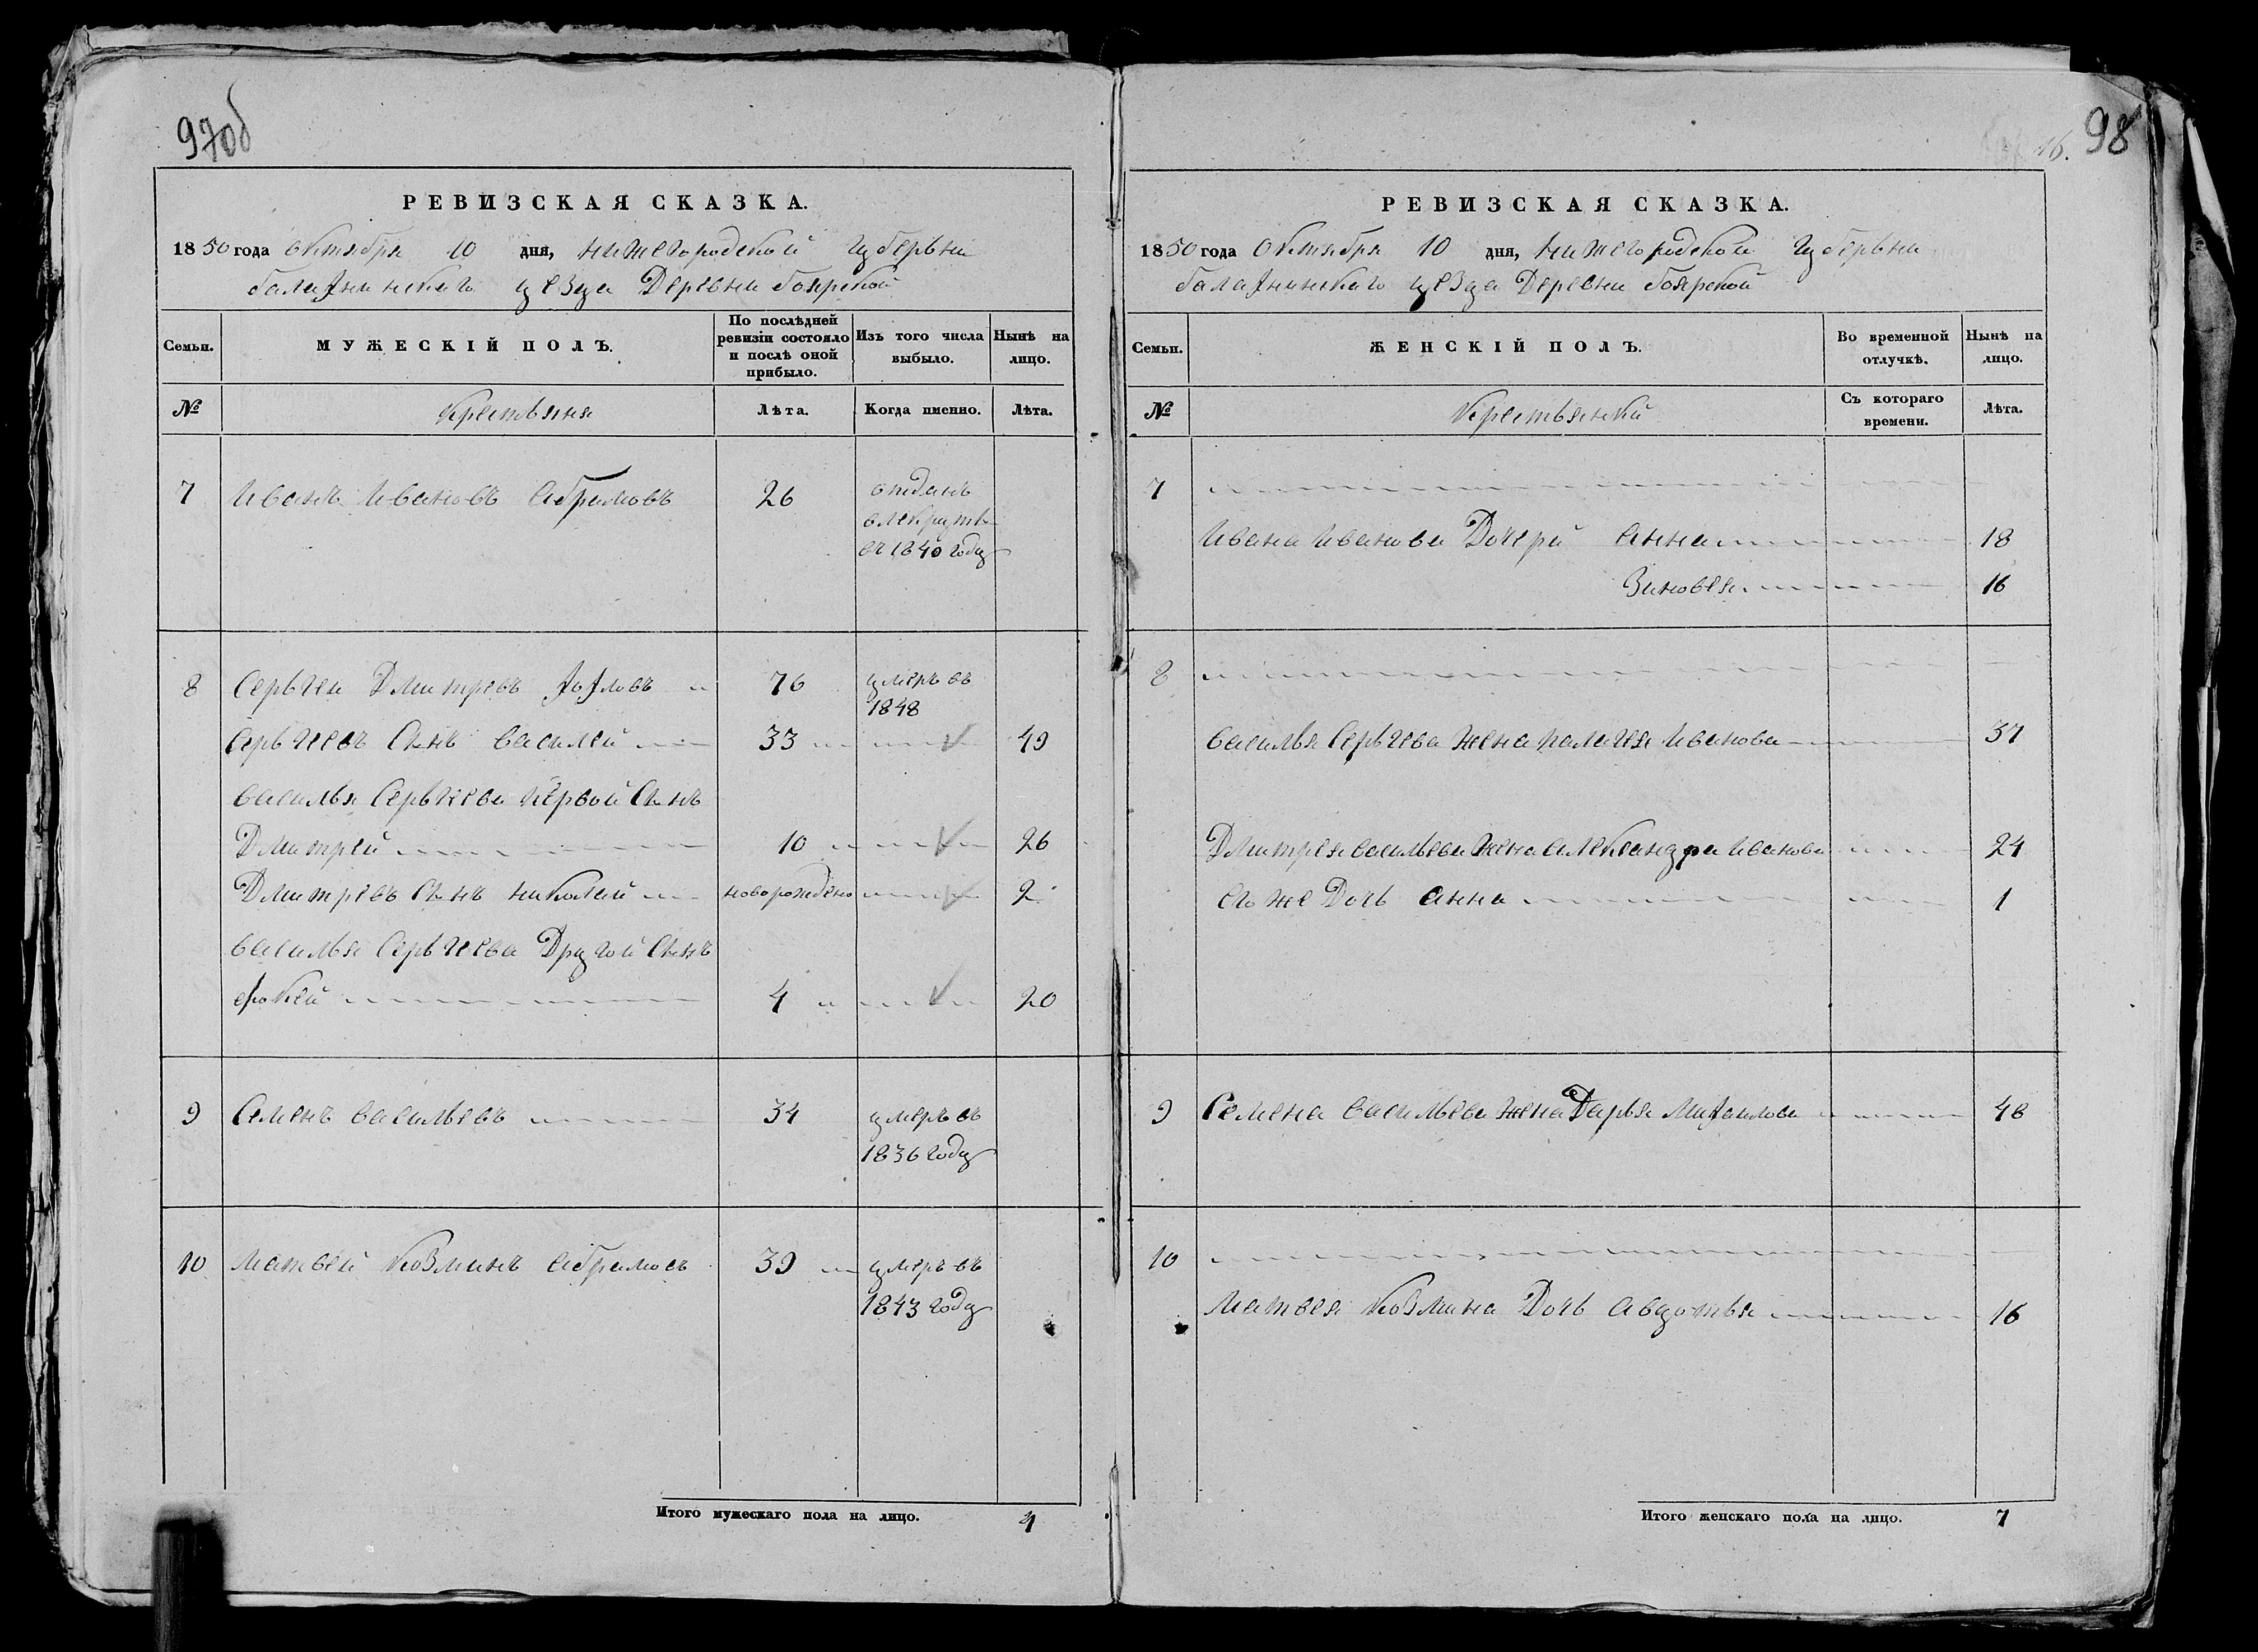 97об
РЕВИЗСКАЯ СКАЗКА.
1850 года октября 10 дня, нижегородской губерьни
балахнинскаго уезда Деревни боярской
Семьи. МУЖЕСКІЙ ПОЛЪ. По послѣдней ревизіи состояло и послѣ оной прибыло. Изъ того числа выбыло. Нынѣ на лицо.
№ Крестьяня Лѣта. Когда именно. Лѣта.
7 Иванъ Ивановъ Абрамовъ 26 отданъ
в рекруты
въ 1840 году
8 Сергеи Дмитревъ 76 умеръ въ
1848
Сергеевъ Сынъ василей 33 49
василья Сергеева первой Сынъ
Дмитрей 10 26
Дмитревъ Сынъ николай новорожденой 2
василья Сергеева Другой Сынъ
фокей 4 20
9 Семенъ васильевъ 34 умеръ въ
1836 году
10 матвей Козминъ абрамовъ 39 умеръ въ
1843 году
Итого мужескаго пола на лицо. 4
16. 98
РЕВИЗСКАЯ СКАЗКА.
1850 года Октября 10 дня, нижегородской губерьни
балахнинскаго уезда Деревни боярской
Семьи. ЖЕНСКІЙ ПОЛЪ. Во временной отлучкѣ. Нынѣ на лицо.
№ Крестьянскій Съ котораго времени. Лѣта.
7
Ивана Иванова Дочери анна 18
Зиновея 16
8
василья Сергева жена палагея Иванова 37
Дмитрея васильева жена александра Иванова 24
его же Дочь анна 1
9 Семена васильева жена Дарья михаилова 48
10
матвея Козмина Дочь авдотья 16
Итого женскаго пола на лицо. 7